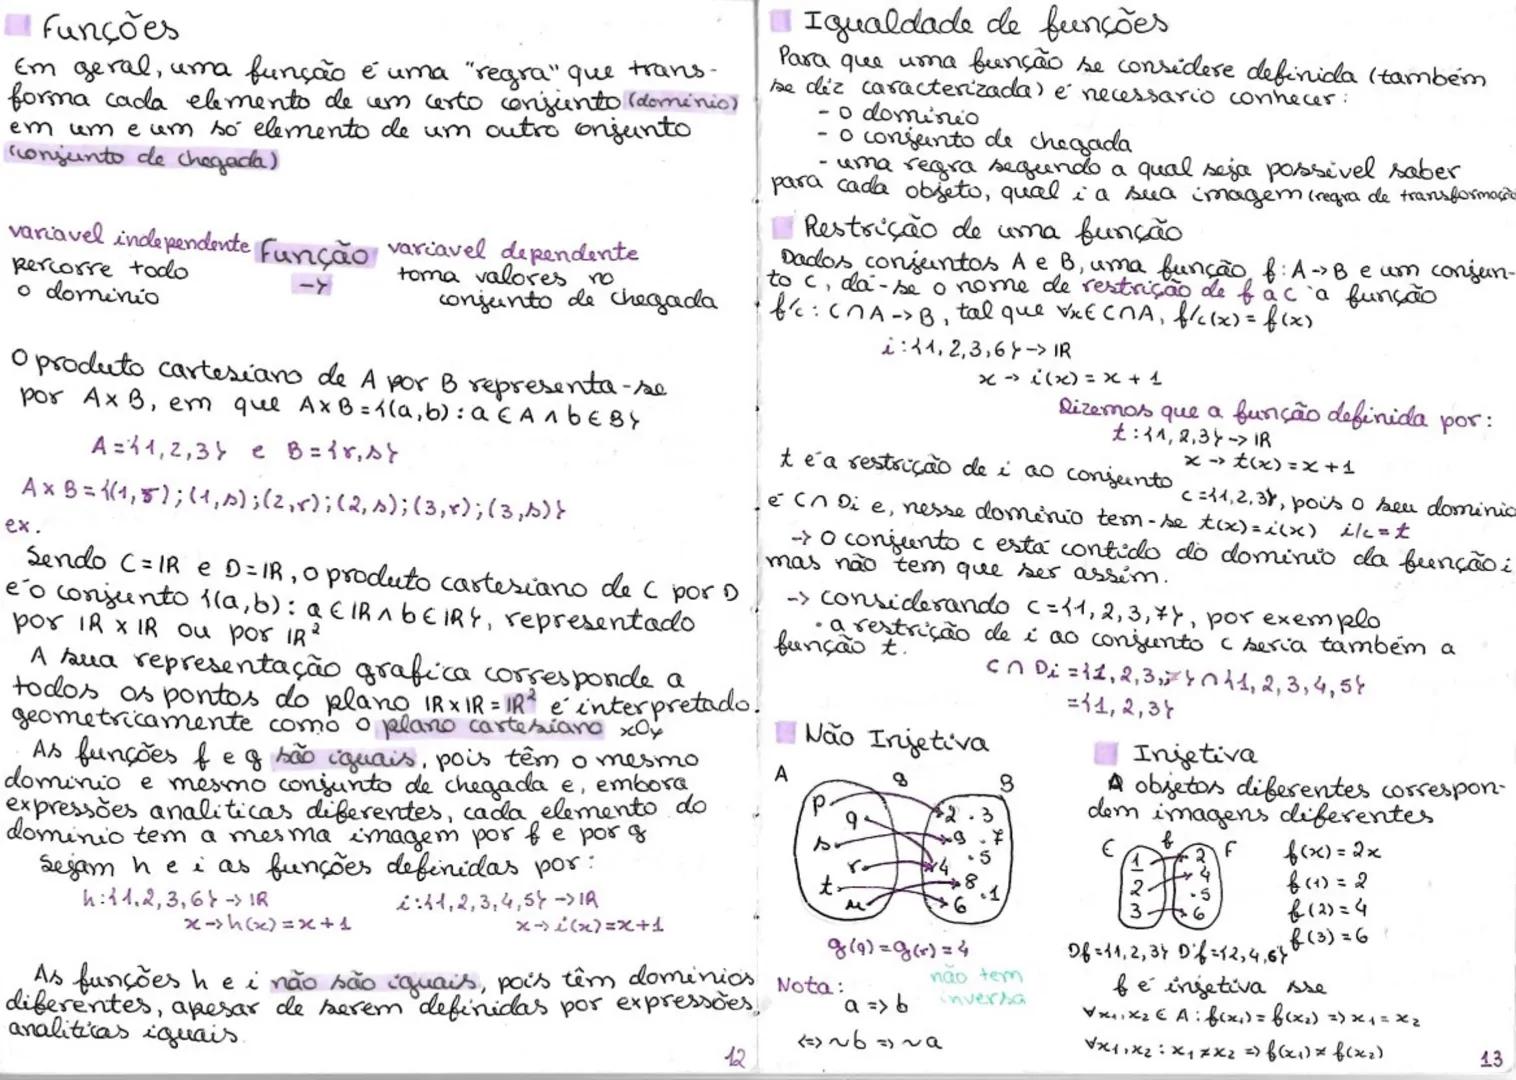 Funções
Em geral, uma função é uma "regra" que trans-
forma cada elemento de um certo conjunto (dominio)
em um e um só elemento de um outro conjunto
(conjunto de chegada)
variavel independente Função variavel dependente
percorre todo -> toma valores no
o dominio conjunto de chegada
O produto cartesiano de A por B representa-se
por A x B, em que A x B = {(a,b) : a ∈ A ∧ b ∈ B}
A = {1,2,3} e B = {r,s}
A x B = {(1,r);(1,s);(2,r);(2,s);(3,r);(3,s)}
ex.
Sendo C = IR e D = IR, o produto cartesiano de C por D
é o conjunto {(a,b) : a ∈ IR ∧ b ∈ IR}, representado
por IR x IR ou por IR²
A sua representação grafica corresponde a
todos os pontos do plano IR x IR = IR² e é interpretado
geometricamente como o plano cartesiano xOy
As funções f e g são iguais, pois têm o mesmo
dominio e mesmo conjunto de chegada e, embora
expressões analiticas diferentes, cada elemento do
dominio tem a mesma imagem por f e por g
Sejam h e i as funções definidas por:
h:{1,2,3,6} -> IR i:{1,2,3,4,5} -> IR
x -> h(x) = x + 1 x -> i(x) = x + 1
As funções h e i não são iguais, pois têm dominios
diferentes, apesar de serem definidas por expressões
analiticas iguais.
12
Igualdade de funções
Para que uma função se considere definida (também
se diz caracterizada) é necessario conhecer:
- o dominio
- o conjunto de chegada
- uma regra segundo a qual seja possivel saber
para cada objeto, qual é a sua imagem (regra de transformação
Restrição de uma função
Dados conjuntos A e B, uma função f: A -> B e um conjun-
to C, dá-se o nome de restrição de f a C à função
f/c : C ∩ A -> B, tal que ∀x ∈ C ∩ A, f/c(x) = f(x)
i:{1,2,3,6} -> IR
x -> i(x) = x + 1
Dizemos que a função definida por:
t:{1,2,3} -> IR
x -> t(x) = x + 1
t é a restrição de i ao conjunto
C = {1,2,3}, pois o seu dominio
é C ∩ Di e, nesse dominio tem-se t(x) = i(x) i/c = t
-> O conjunto C está contido do dominio da função i
mas não tem que ser assim.
-> considerando C = {1,2,3,7}, por exemplo
· a restrição de i ao conjunto C seria também a
função t.
C ∩ Di = {1,2,3,7} ∩ {1,2,3,4,5}
= {1,2,3}
Não Injetiva
A g B
p q s r t u
2 · 3
9 · 7
4 · 5
8 · 1
6
g(q) = g(r) = 4
não tem
inversa
Nota:
a => b
<=> ~b => ~a
Injetiva
A objetos diferentes correspon-
dem imagens diferentes
E f F
1 2
2 4
· 5
3 6
f(x) = 2x
f(1) = 2
f(2) = 4
f(3) = 6
Df = {1,2,3} D'f = {2,4,6}
f é injetiva sse
∀x₁,x₂ ∈ A : f(x₁) = f(x₂) => x₁ = x₂
∀x₁,x₂ : x₁ ≠ x₂ => f(x₁) ≠ f(x₂)
13